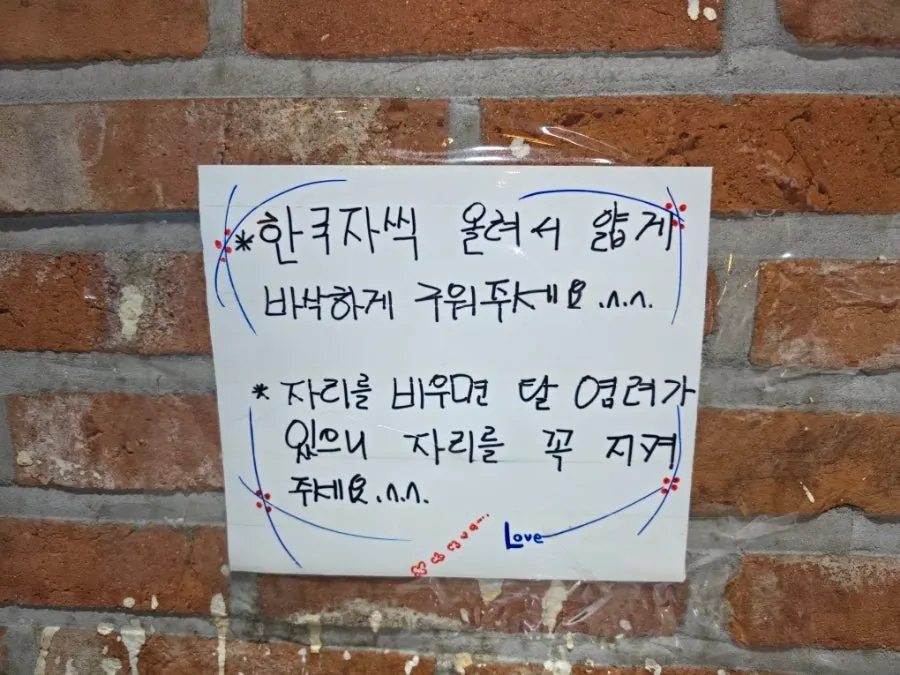 *한국자씩 올려서 얇게
바삭하게 구워주세요.^.^.
* 자리를 비우면 탈 염려가
있으니 자리를 꼭 지켜
주세요.^.^.
Love